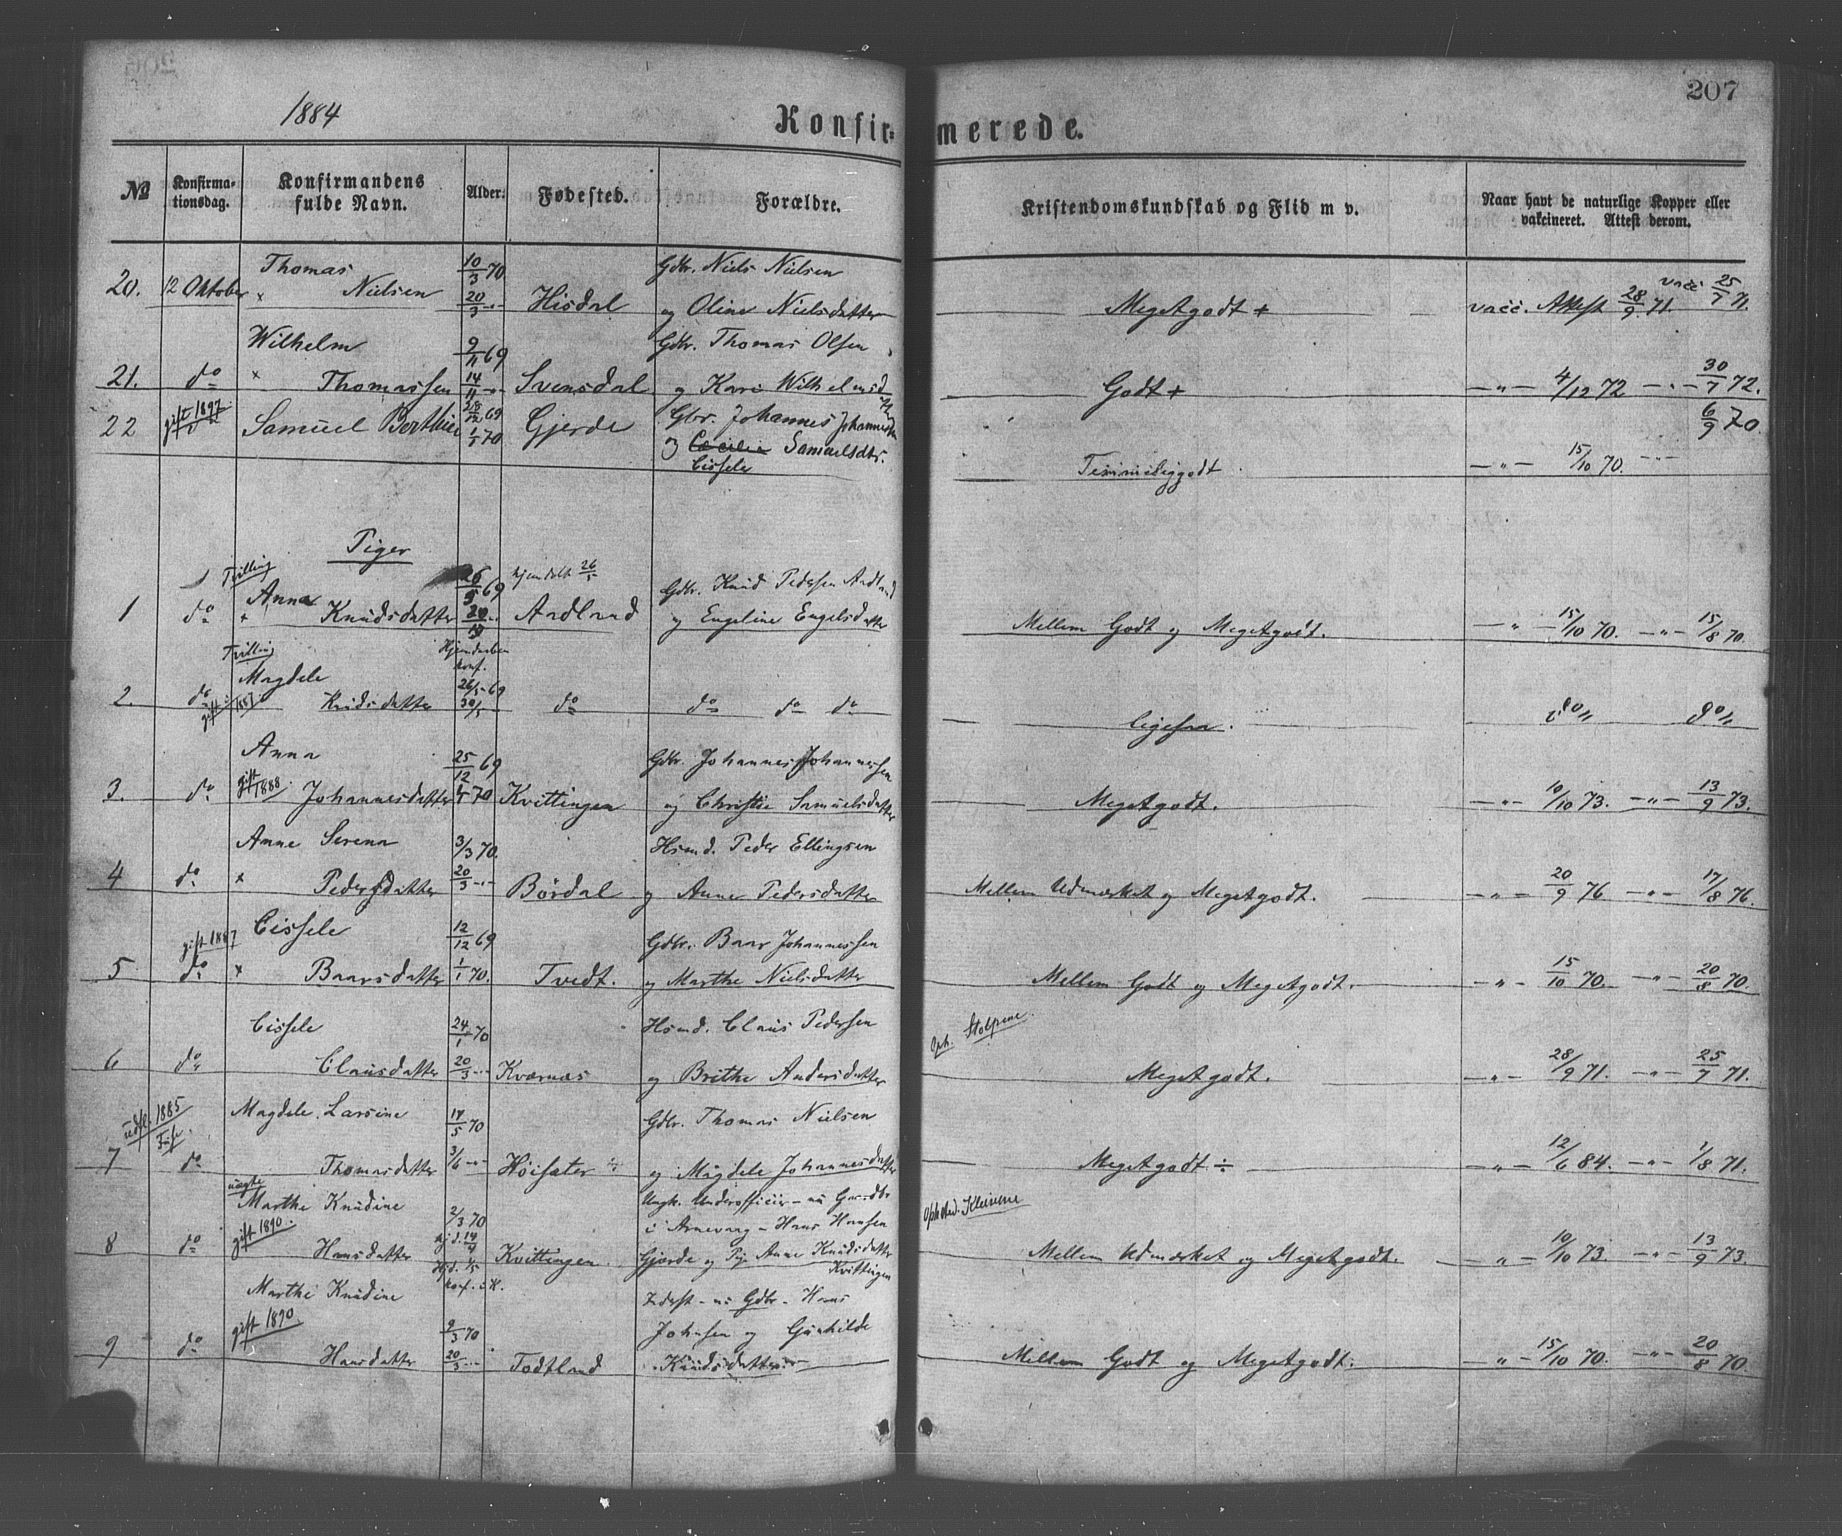 207
1884
Konfir-
merede.
No
Konfirma-
tionsdag.
Konfirmandens
fulde Navn.
Alder.
Fødested.
Forældre.
Kristendomskundskab og Flid m v.
Naar havt de naturlige Kopper eller
vakcineret. Attest derom.
Thomas 10/3 70 Gdbr. Niels Nielsen vacc 25/7 71.
20. 12 Oktober × Nielsen 20/3 -"- Hisdal og Oline Nielsdatter Megetgodt + vacc. Attest 28/9 71.
Wilhelm 9/11 69 Gdbr. Thomas Olsen
21. do × Thomassen 14/11 -"- Svensdal og Kari Wilhelmsd Godt + -"- 4/12 72 -"- 30/7 72.
22 gift 1897 Samuel Berthin 69 1/1 70 Gjerde Gbr. Johannes Johannessen 6/9 70.
og Cecilie Samuelsdtr.
Cissele Temmeliggodt -"- 15/10 70. -"-
Piger
Tvilling 26/5 69 hjemdøbt 26/5 Gdbr. Knud Pedersen Ardland
1 do Anna × Knudsdatter Ardland og Engeline Engelsdatter Mellem Godt og Megetgodt. -"- 15/10 70. -"- 15/8 70.
Tvilling Hjemdøben
konf.
Magdele 26/5 69
2. do Knudsdatter 30/5 do do do do ligesaa. do do
gift 1887
Anna 25/12 69 Gdbr. Johannes Johannessen
3. do gift 1888 Johannesdatter 70 Kvittingen og Christie Samuelsdatter Megetgodt. -"- 10/10 73. -"- 13/9 73.
Anne Serena 3/3 70. Hsmd. Peder Ellingsen
4 do × Pedersdatter 20/3 -"- Børdal og Anne Pedersdatter Mellem Udmærket og Megetgodt. -"- 20/9 76 -"- 17/8 76.
Cissele 12/12 69 Gdbr. Baar Johannessen
gift 1887
5 do × Baarsdatter 1/1 70. Tvedt. og Marthe Nielsdatter Mellem Godt og Megetgodt. -"- 15/10 70. -"- 20/8 70.
Cissele 24/1 70 Hsmd. Claus Pedersen Oph. Stolpene.
6 do Clausdatter 20/3 -"- Kvernæs og Brithe Andersdatter Megetgodt. -"- 28/9 71. -"- 25/7 71.
udfl. 1885
Fuse.
Magdele Larsine 17/5 70 Gdbr. Thomas Nielsen
7 do Thomasdatter 3/6 -"- Høisæter og Magdele Johannesdatter Megetgodt ÷ -"- 12/6 84. -"- 1/8 71.
uægte
Marthe Knudine 2/3 70 Ungk. Underofficier - nu Gaardbr Opholsd. Kleivene
gift 1890. i Arnevaag - Hans Hansen
8 do Hansdatter Kvittingen Gjerde og Pige Anne Knudsdatter Mellem Udmærket og Megetgodt. -"- 10/10 73. -"- 13/9 73.
Kvittingen
Marthe Knudine konf. i K. - nu Gdbr. Hans
gift 1890 9/3 70 Johnsen og Gunhilde
9 do Hansdatter 20/3 -"- Todtland Knudsdatter Mellem Godt og Megetgodt. -"- 15/10 70. -"- 20/8 70.